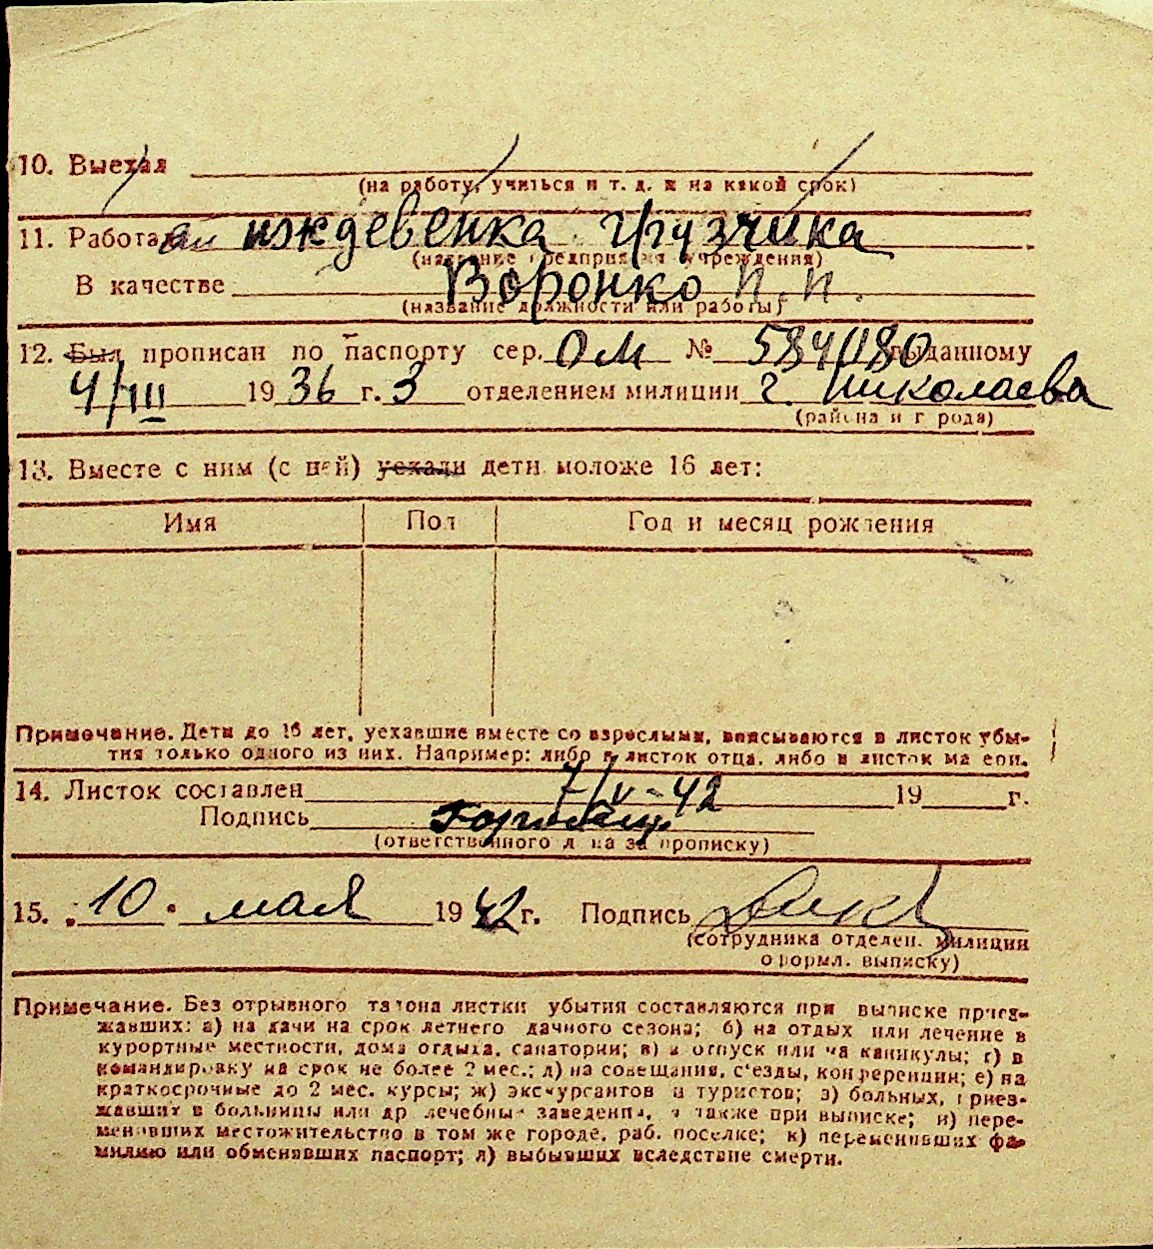 10. Выехал
(на работу, учиться и т. д. и на какой срок)
11. Работал иждевенка грузчика
(название предприятия учреждения)
В качестве Воронко П. П.
(название должности или работы)
12. Был прописан по паспорту сер. ОМ № 584080 выданному
4/III 1936 г. 3 отделением милиции г. Николаева
(района и города)
13. Вместе с ним (с ней) уехали дети моложе 16 лет:
Имя Пол Год и месяц рождения
Примечание. Дети до 16 лет, уехавшие вместе со взрослыми, вписываются в листок убы-
тия только одного из них. Например: либо в листок отца, либо в листок матери.
14. Листок составлен 7/V-42 19 г.
Подпись
(ответственного лица за прописку)
15. 10. мая 1942 г. Подпись
(сотрудника отделен. милиции
оформл. выписку)
Примечание. Без отрывного талона листки убытия составляются при выписке приез-
жавших: а) на дачи на срок летнего дачного сезона; б) на отдых или лечение в
курортные местности, дома отдыха, санатории; в) в отпуск или на каникулы; г) в
командировку на срок не более 2 мес.; д) на совещания, с'езды, конференции; е) на
краткосрочные до 2 мес. курсы; ж) экскурсантов и туристов; з) больных, приез-
жавших в больницы или др лечебные заведения, а также при выписке; и) пере-
менивших местожительство в том же городе, раб. поселке; к) переменивших фа-
милию или обменявших паспорт; л) выбывших вследствие смерти.